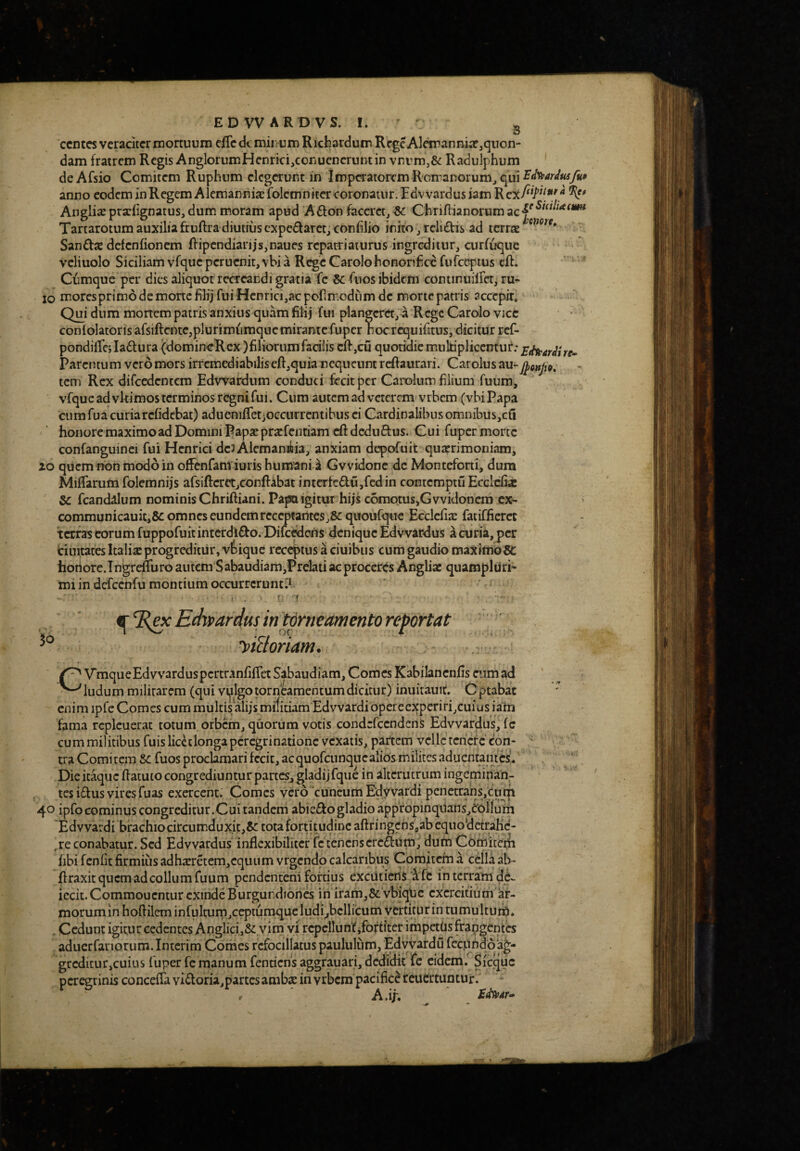 EDVVARDVS. I. 3
centes veraciter mortuum esse de mirum Richardum Regē Alemanniæ, quon-
dam fratrem Regis Anglorum Henrici, conuenerunt in vnum, & Radulphum
de Afsio Comitem Ruphum elegerunt in Imperatorem Romanorum, qui
Edwardus su-
anno eodem in Regem Alemanniæ solemniter coronatur. Edvvardus iam Rex
scipitur à Re-
Angliæ præsignatus, dum moram apud Acton faceret, & Christianorum ac
ge Siciliæ cum
Tartarotum auxilia frustra diutius expectaret, consilio inito, relictis ad terræ
honore.
Sanctæ defensionem stipendiarijs, naues repatriaturus ingreditur, cursúque
veliuolo Siciliam vsque peruenit, vbi à Rege Carolo honorificè susceptus est.
Cúmque per dies aliquot recreandi gratia se & suos ibidem continuisset, ru-
10 mores primò de morte filij sui Henrici, ac postmodùm de morte patris accepit.
Qui dum mortem patris anxius quàm filij sui plangeret, à Rege Carolo vice
consolatoris assistente, plurimúmque mirante super hoc requisitus, dicitur res-
pondisse; Iactura (domine Rex) filiorum facilis est, cū quotidie multiplicentur:
Edwardi re-
Parentum verò mors irremediabilis est, quia nequeunt restaurari. Carolus au-
sponsio.
tem Rex discedentem Edvvardum conduci fecit per Carolum filium suum,
vsque ad vltimos terminos regni sui. Cum autem ad veterem vrbem (vbi Papa
cum sua curia residebat) aduenisset, occurrentibus ei Cardinalibus omnibus, cū
honore maximo ad Domini Papæ præsentiam est deductus. Cui super morte
consanguinei sui Henrici de Alemannia, anxiam deposuit quærimoniam,
20 quem non modò in offensam iuris humani à Gvvidone de Monteforti, dum
Missarum solemnijs assisteret, constabat interfectū, sed in contemptū Ecclesiæ
& scandalum nominis Christiani. Papa igitur hijs comotus, Gvvidonem ex-
communicauit, & omnes eundem receptantes, & quousque Ecclesiæ satisfieret
terras eorum supposuit interdicto. Discedens denique Edvvardus à curia, per
ciuitates Italiæ progreditur, vbique receptus à ciuibus cum gaudio maximo &
honore. Ingressuro autem Sabaudiam, Prelati ac proceres Angliæ quamplùri-
mi in descensu montium occurrerunt.
¶ Rex Edwardus in torneamento reportat
30 victoriam.
CVmque Edvvardus pertransisset Sabaudiam, Comes Kabilanensis eum ad
ludum militarem (qui vulgo torneamentum dicitur) inuitauit. Optabat
enim ipse Comes cum multis alijs militiam Edvvardi opere experiri, cuius iam
fama repleuerat totum orbem, quorum votis condescendens Edvvardus, se
cum militibus suis licèt longa peregrinatione vexatis, partem velle tenere con-
tra Comitem & suos proclamari fecit, ac quoscunque alios milites aduentantes.
Die itáque statuto congrediuntur partes, gladijsque in alterutrum ingeminan-
tes ictus vires suas exercent. Comes verò cuneum Edvvardi penetrans, cum
40 ipso cominus congreditur. Cui tandem abiecto gladio appropinquans, collum
Edvvardi brachio circumduxit, & tota fortitudine astringens, ab equo detrahe-
re conabatur. Sed Edvvardus inflexibiliter se tenens erectum, dum Comitem
sibi sensit firmiùs adhærētem, equum vrgendo calcaribus Comitem à cella ab-
straxit quem ad collum suum pendentem fortius excutiens à se in terram de-
iecit. Commouentur exinde Burgundiones in iram, & vbique exercitium ar-
morum in hostilem insultum, ceptúmque ludi, bellicum vertitur in tumultum.
Cedunt igitur cedentes Anglici, & vim vi repellunt, fortiter impetús frangentes
aduersariorum. Interim Comes refocillatus paululùm, Edvvardū secundò ag-
greditur, cuius super se manum sentiens aggrauari, dedidit se eidem. Sicque
peregrinis concessa victoria, partes ambæ in vrbem pacificè reuertuntur.
A.ij. Edwar-